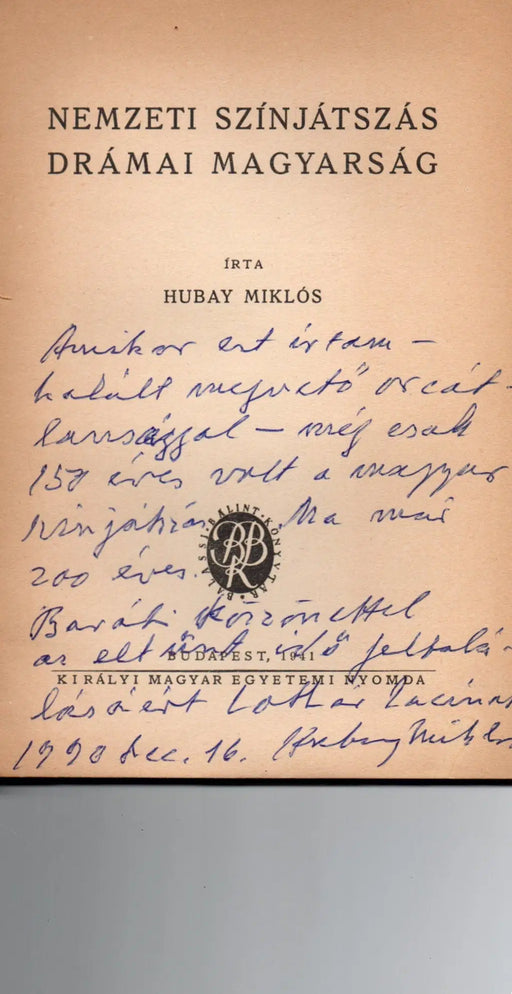 NEMZETI SZÍNJÁTSZÁS
DRÁMAI MAGYARSÁG
ÍRTA
HUBAY MIKLÓS
Amikor ezt írtam –
halált megvető orcát-
lansággal – még csak
150 éves volt a magyar
színjátszás. Ma már
200 éves.
BALASSI BÁLINT-KÖNYVTÁR
BBK
Baráti köszönettel
az eltűnt idő feltalá-
BUDAPEST, 1941
KIRÁLYI MAGYAR EGYETEMI NYOMDA
lásáért Lothár Lacinak
1990 dec. 16. Hubay Miklós